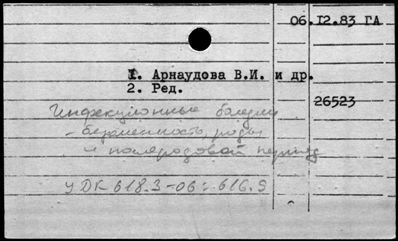 06.12.83 ГА
1. Арнаудова В.И. и др.
2. Ред.
26523
Инфекциозные болезни
- беременность, роды
и послеродовой период
УДК 618.3-06:616.9